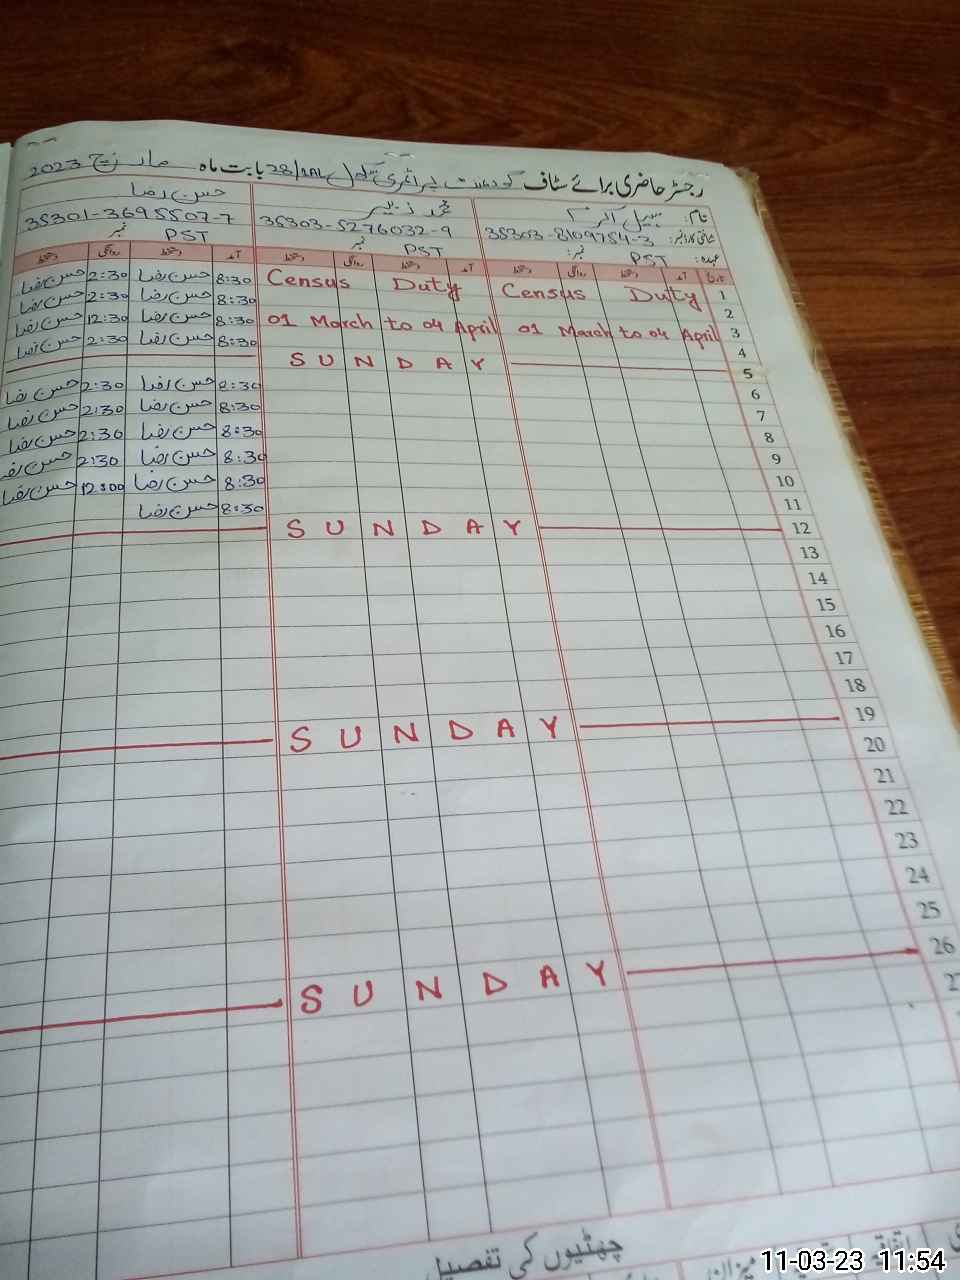 رجسٹر حاضری برائے سٹاف گورنمنٹ پرائمری سکول 28/2AL بابت ماہ مارچ 2023
نام: سہیل اکرم محمد زبیر حسن رضا
شناختی کارڈ نمبر: 35303-8109754-3 35303-5276032-9 35301-3695507-7
عہدہ: PST نمبر: PST نمبر PST نمبر
تاریخ آمد دستخط روانگی دستخط آمد دستخط روانگی دستخط آمد دستخط روانگی دستخط
1 Census Duty Census Duty 8:30 حسن رضا 2:30 حسن رضا
2 8:30 حسن رضا 2:30 حسن رضا
3 01 March to 04 April 01 March to 04 April 8:30 حسن رضا 12:30 حسن رضا
4 8:30 حسن رضا 2:30 حسن رضا
5 SUNDAY
6 8:30 حسن رضا 2:30 حسن رضا
7 8:30 حسن رضا 2:30 حسن رضا
8 8:30 حسن رضا 2:30 حسن رضا
9 8:30 حسن رضا 2:30 حسن رضا
10 8:30 حسن رضا 12:00 حسن رضا
11 8:30 حسن رضا
12 SUNDAY
13
14
15
16
17
18
19 SUNDAY
20
21
22
23
24
25
26 SUNDAY
27
چھٹیوں کی تفصیل
اتفاقیہ میزان
11-03-23 11:54